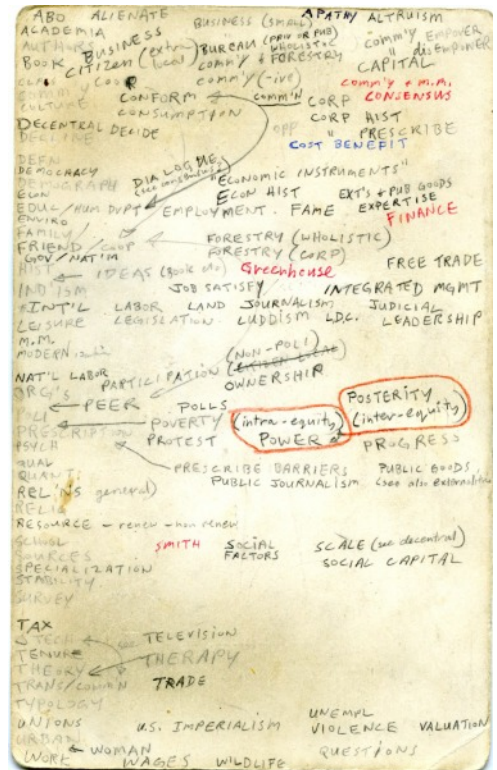 ABO ALIENATE BUSINESS (small) APATHY ALTRUISM
ACADEMIA
AUTHORS BUSINESS BUREAU (PRIV OR PUB) COMM'Y EMPOWER
BOOK CITIZEN (extra local) COMM'Y & WHOLISTIC FORESTRY " disEmpower
CAPITAL
COOP COMM'Y (-ive) COMM'Y & M.M.
CULTURE CONFORM COMM'N CORP CONSENSUS
CONSUMPTION CORP HIST
DECENTRAL DECIDE OPP " PRESCRIBE
DECLINE COST BENEFIT
DEFN
DEMOCRACY DIALOGUE "ECONOMIC INSTRUMENTS"
DEMOGRAPH (see consensus)
ECON ECON HIST EXT'S & PUB GOODS
EDUC/HUM DVPT EMPLOYMENT. FAME EXPERTISE
ENVIRO FINANCE
FAMILY/
FRIEND/COOP FORESTRY (WHOLISTIC)
GOV/NAT'M FORESTRY (CORP) FREE TRADE
HIST IDEAS (Book No) Greenhouse
IND'ISM JOB SATISFY INTEGRATED MGMT
INT'L LABOR LAND JOURNALISM JUDICIAL
LEISURE LEGISLATION LUDDISM L.D.C. LEADERSHIP
M.M.
MODERN (NON-POLI)
NAT'L LABOR PARTICIPATION (CITIZEN LOCAL)
ORG'S OWNERSHIP
PEER POLLS POSTERITY
POLI POVERTY (intra-equity) (inter-equity)
PRESCRIPTION PROTEST POWER PROGRESS
PSYCH
QUAL PRESCRIBE BARRIERS PUBLIC GOODS
QUANT PUBLIC JOURNALISM (see also externalities)
REL'NS general)
RELIG
RESOURCE - renew - non renew
SCHOOL SMITH SOCIAL FACTORS SCALE (see decentral)
SOURCES SOCIAL CAPITAL
SPECIALIZATION
STABILITY
SURVEY
TAX
TECH TELEVISION
TENURE
THEORY THERAPY
TRANS/COMM'N TRADE
TYPOLOGY
UNIONS U.S. IMPERIALISM UNEMPL
URBAN VIOLENCE VALUATION
WOMAN QUESTIONS
WORK WAGES WILDLIFE